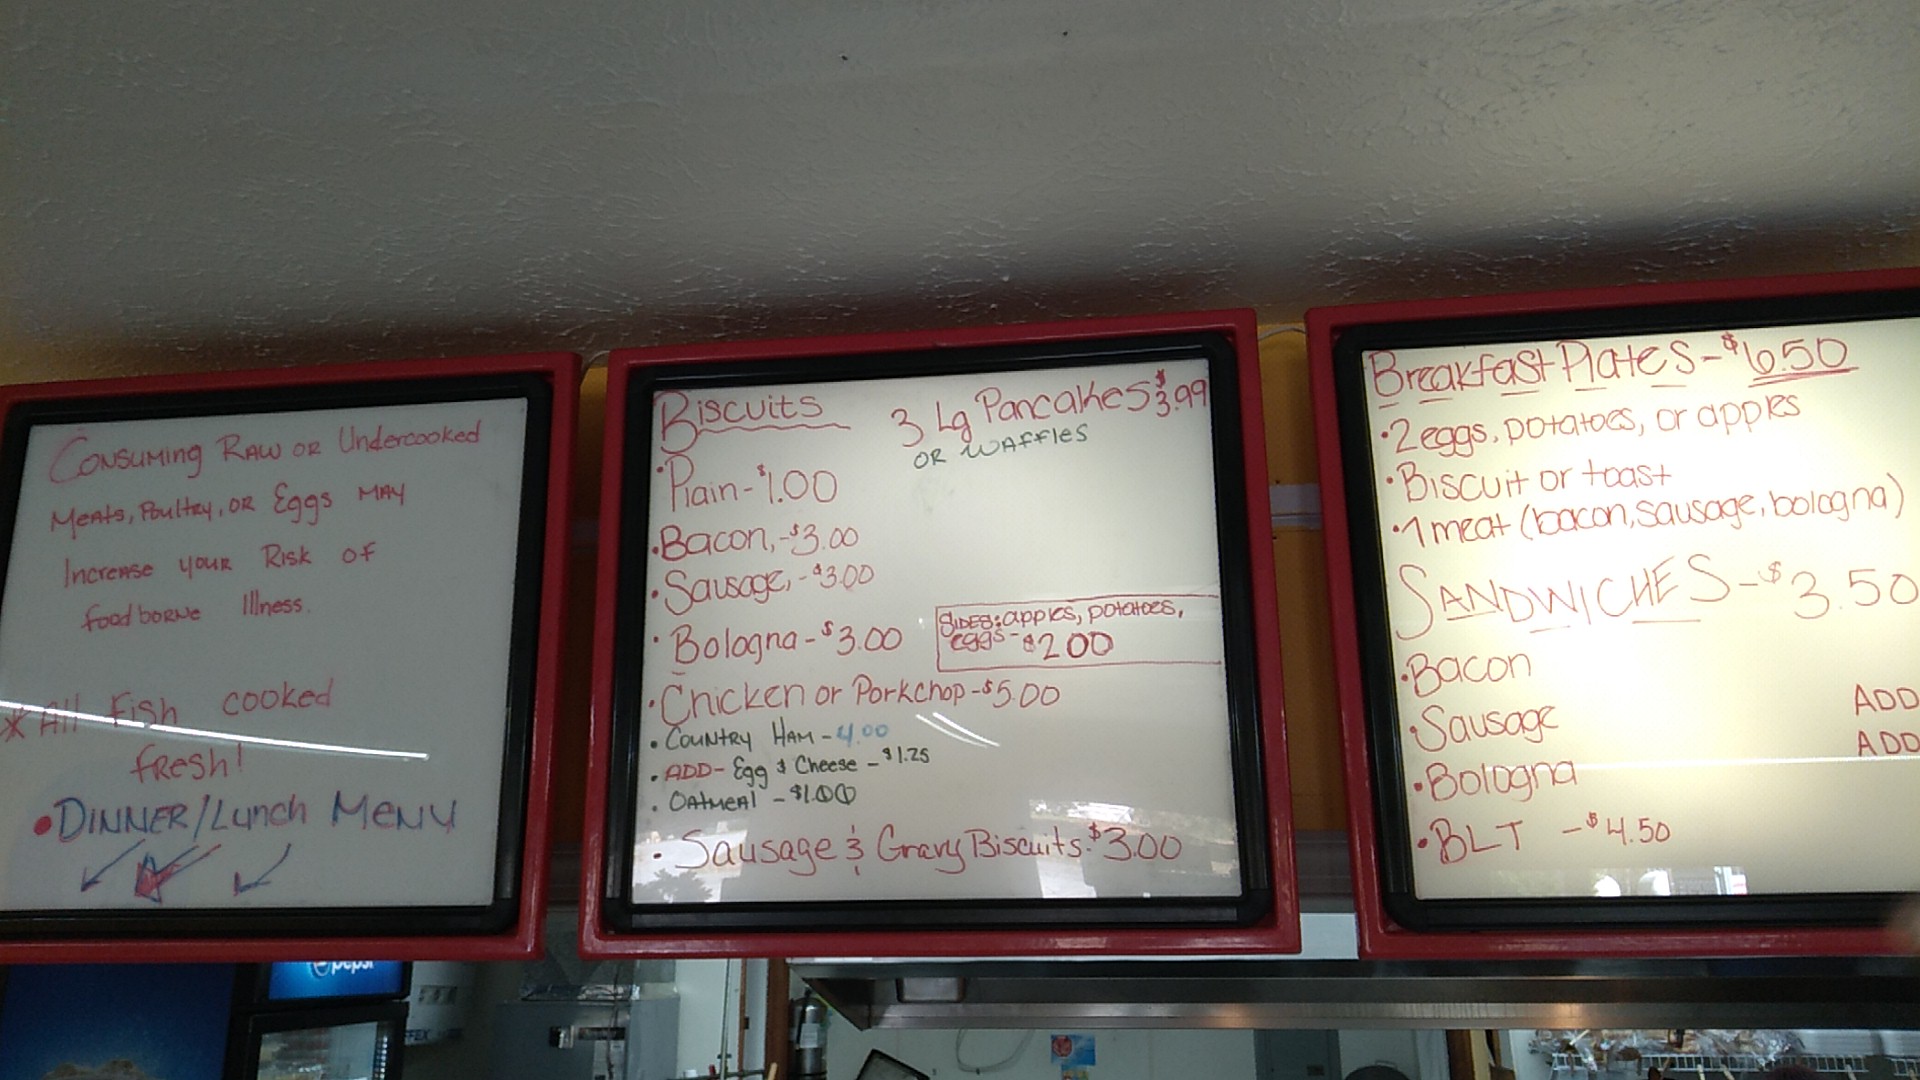 Consuming Raw or Undercooked
Meats, Poultry, or Eggs may
Increase your Risk of
foodborne Illness.
* All Fish cooked
fresh!
• Dinner/Lunch Menu
Biscuits
3 Lg Pancakes $3.99
or waffles
• Plain - $1.00
• Bacon, - $3.00
• Sausage, - $3.00
• Bologna - $3.00
Sides: apples, potatoes,
eggs - $2.00
• Chicken or Porkchop - $5.00
• Country Ham - 4.00
• ADD - Egg & Cheese - $1.25
• Oatmeal - $1.00
• Sausage & Gravy Biscuits - $3.00
Breakfast Plates - $6.50
• 2 eggs, potatoes, or apples
• Biscuit or toast
• 1 meat (bacon, sausage, bologna)
SANDWICHES - $3.50
• Bacon
• Sausage
ADD
ADD
• Bologna
• BLT - $4.50
pepsi